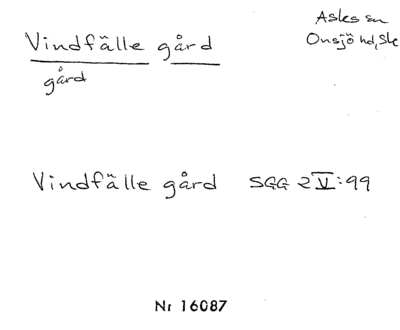 Vindfälle gård
Asks sn
Onsjö hd, Sk
gård
Vindfälle gård SGG 2 V:99
Nr 16087